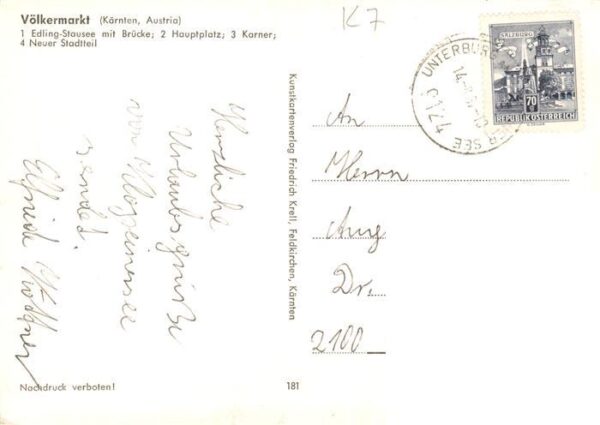 Völkermarkt (Kärnten, Austria)
1 Edling-Stausee mit Brücke; 2 Hauptplatz; 3 Karner;
4 Neuer Stadtteil
K7
Herzliche
Urlaubsgrüße
vom Klopeinersee
sendet
Elfriede
Nachdruck verboten!
Kunstkartenverlag Friedrich Krell, Feldkirchen, Kärnten
181
UNTERBURG
SEE
9124
SALZBURG
70
REPUBLIK ÖSTERREICH
An
Herrn
Aug
Dr.
2100